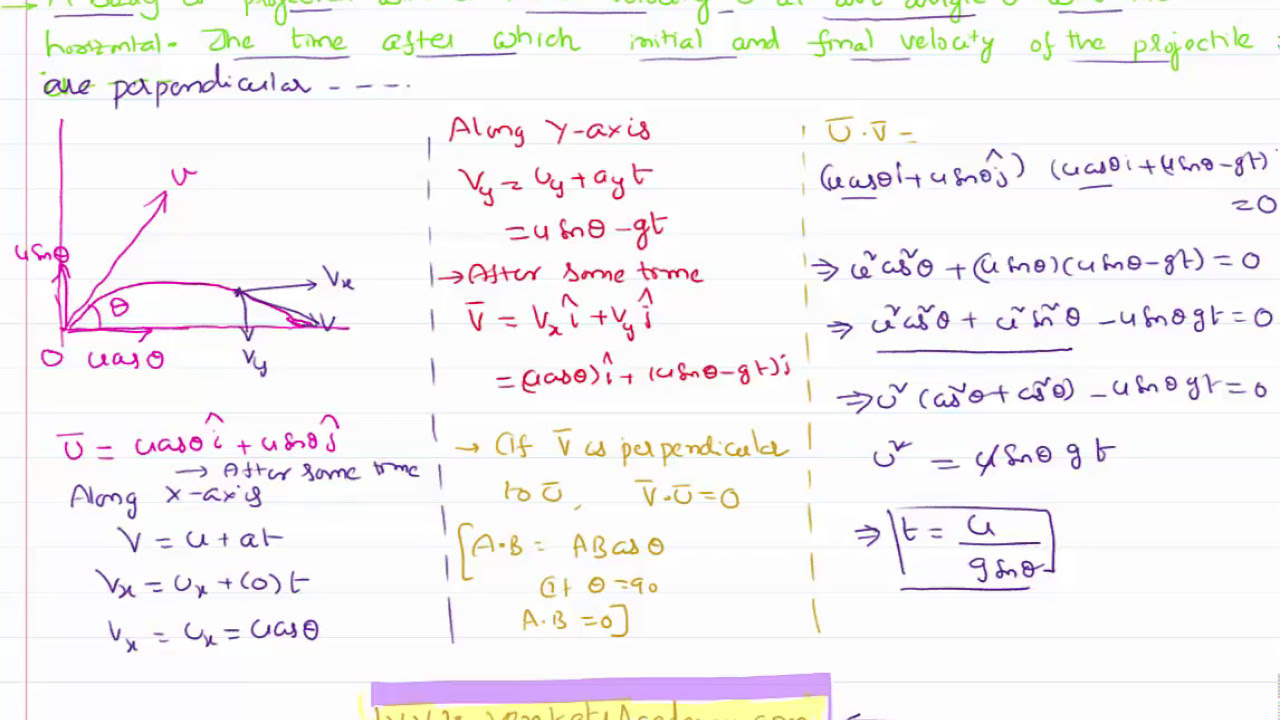 → A body is projected with velocity u at an angle θ with the
horizontal. The time after which initial and final velocity of the projectile
are perpendicular ----.
u
usinθ
θ
Vx
V
Vy
O ucosθ
U̅ = ucosθ î + usinθ ĵ
→ After some time
Along x-axis
V = u + at
Vx = Ux + (0) t
Vx = Ux = ucosθ
Along Y-axis
Vy = Uy + ayt
= usinθ - gt
→ After some time
V̅ = Vx î + Vy ĵ
= (ucosθ) î + (usinθ-gt) j
→ (If V̅ is perpendicular
to U̅, V̅·U̅ = 0
[A·B = AB cosθ
If θ = 90
A·B = 0]
U̅·V̅ =
(ucosθi + usinθ ĵ) (ucosθi + usinθ-gt)
= 0
⇒ u²cos²θ + (usinθ)(usinθ-gt) = 0
⇒ u²cos²θ + u²sin²θ - usinθgt = 0
⇒ u² (cos²θ + cos²θ) - usinθgt = 0
u² = usinθ gt
⇒ t = u / gsinθ